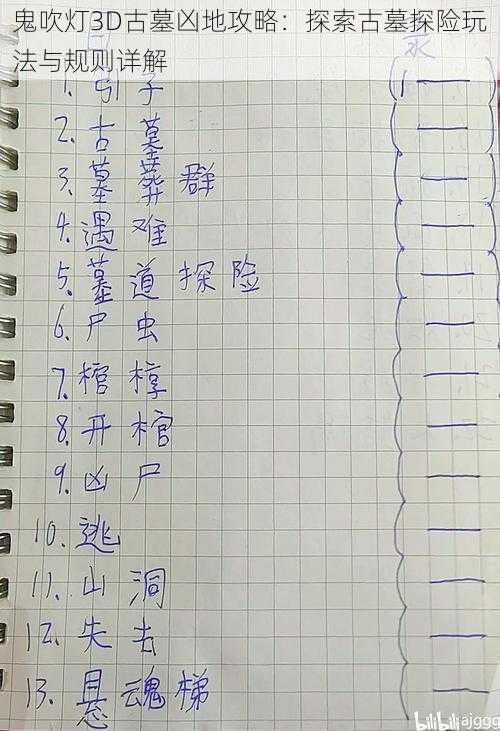 鬼吹灯3D古墓凶地攻略：探索古墓探险玩
法与规则详解
1. 引子
2. 古墓
3. 墓葬群
4. 遇难
5. 墓道探险
6. 尸虫
7. 棺椁
8. 开棺
9. 凶尸
10. 逃
11. 山洞
12. 失去
13. 悬魂梯
bilibili ajggg